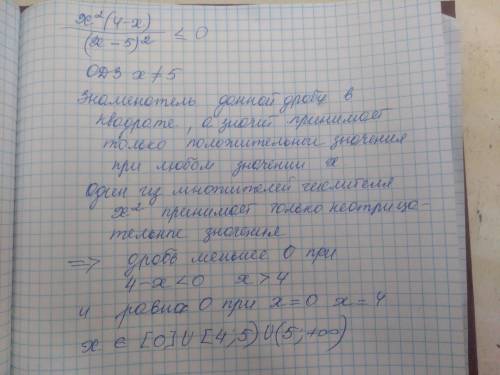 x²(4-x)
(x-5)² ≤ 0
ОДЗ x≠5
Знаменатель данной дроби в
квадрате, а значит принимает
только положительные значения
при любом значении x
Один из множителей числителя
x² принимает только неотрица-
тельные значения
=> дробь меньше 0 при
4-x<0 x>4
и равна 0 при x=0 x=4
x ∈ [0]∪[4;5)∪(5;+∞)